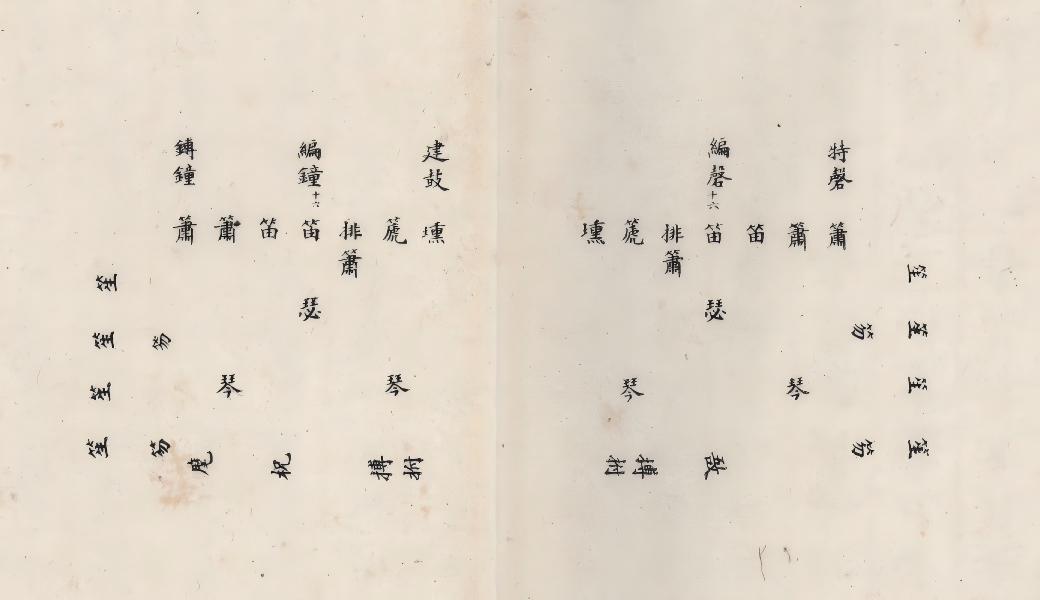 特磬
編磬十六
建鼓
編鐘十六
鎛鐘
簫
簫
笛
笛
排簫
篪
壎
壎
篪
排簫
笛
笛
簫
簫
瑟
瑟
琴
琴
琴
琴
笙
笙
笙
笙
笏
笏
敔
搏拊
搏拊
柷
麾
笏
笏
笙
笙
笙
笙